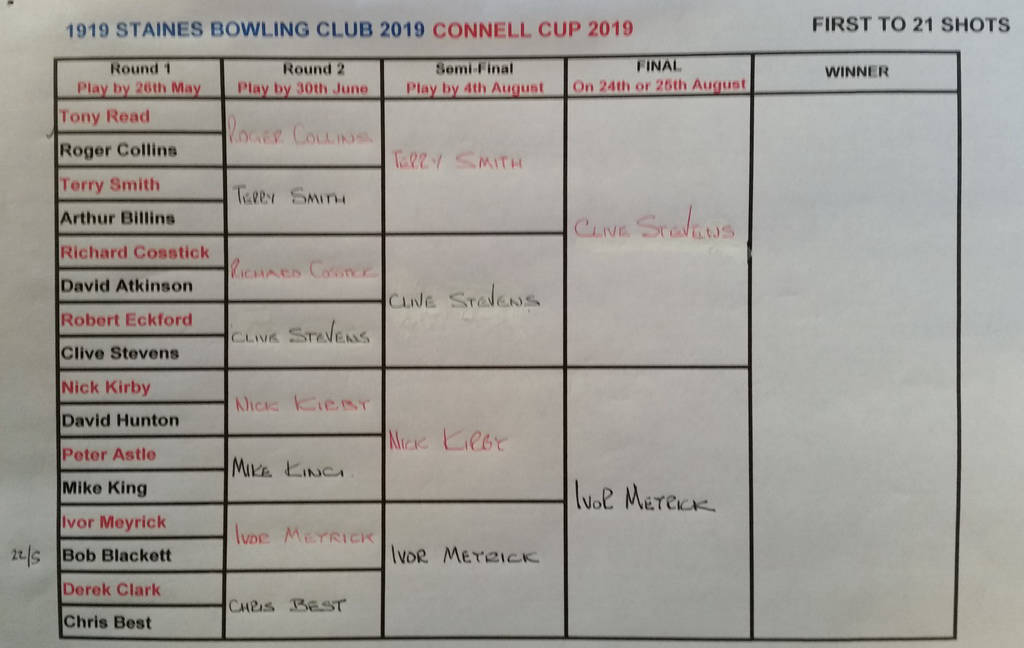 1919 STAINES BOWLING CLUB 2019 CONNELL CUP 2019
FIRST TO 21 SHOTS
Round 1
Play by 26th May
Round 2
Play by 30th June
Semi-Final
Play by 4th August
FINAL
On 24th or 25th August
WINNER
Tony Read
Roger Collins
Terry Smith
Arthur Billins
Richard Cosstick
David Atkinson
Robert Eckford
Clive Stevens
Nick Kirby
David Hunton
Peter Astle
Mike King
Ivor Meyrick
22/5
Bob Blackett
Derek Clark
Chris Best
ROGER COLLINS
TERRY SMITH
RICHARD COSSTICK
CLIVE STEVENS
NICK KIRBY
MIKE KING
IVOR MEYRICK
CHRIS BEST
TERRY SMITH
CLIVE STEVENS
NICK KIRBY
IVOR MEYRICK
CLIVE STEVENS
IVOR MEYRICK